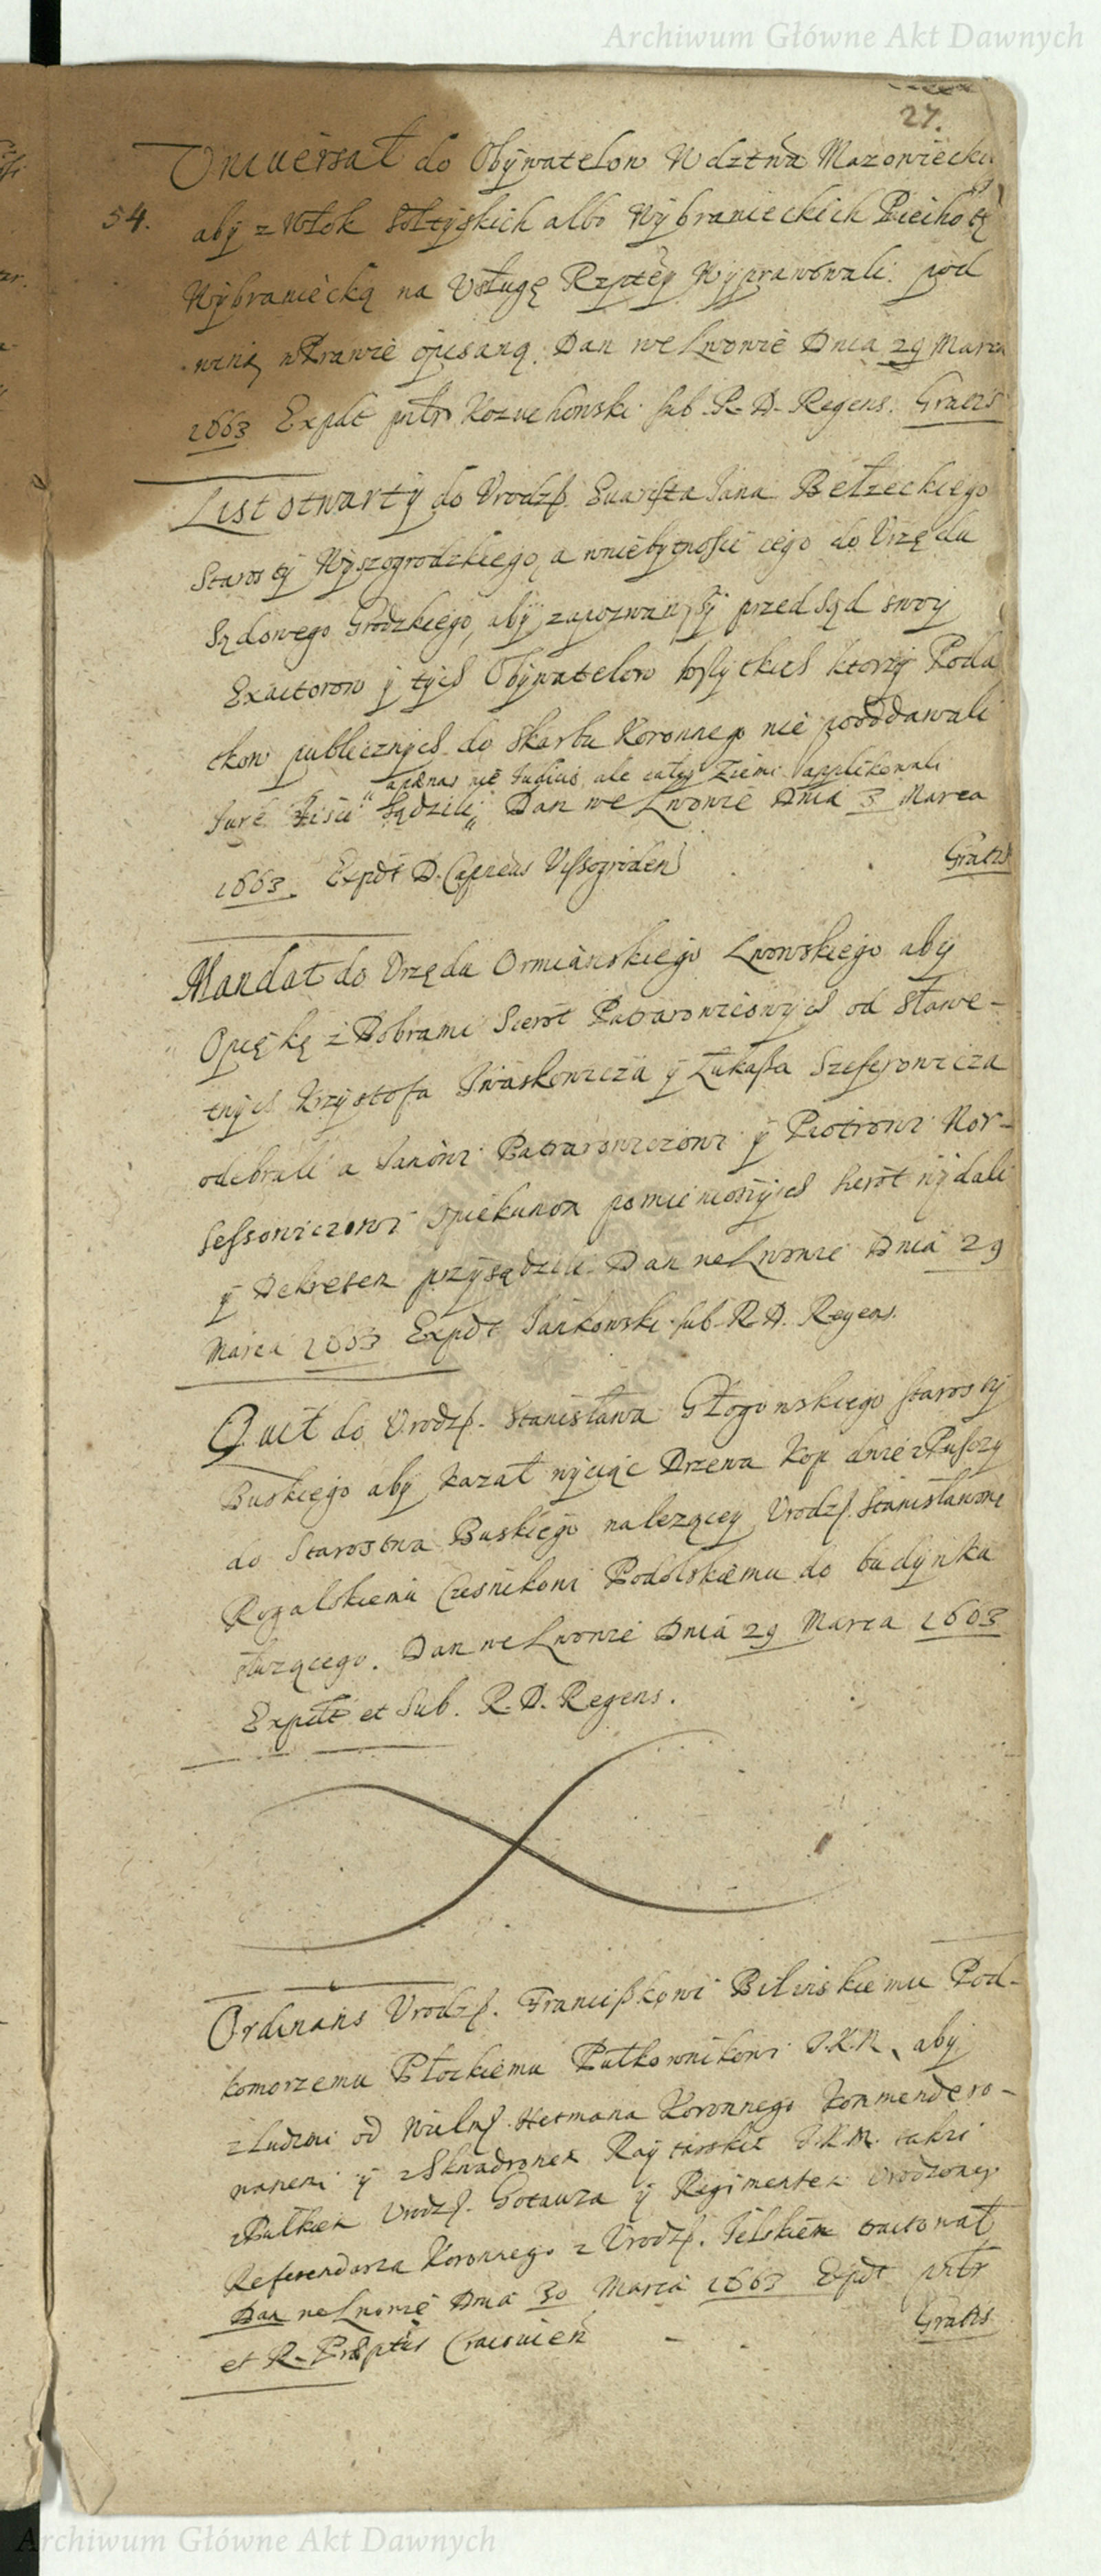 Archiwum Główne Akt Dawnych
27.
Uniuersał do Obywatelow Wdztwa Mazowieckie
54.
aby z Włok Sołtyskich albo Wybranieckich Piechotę
Wybraniecką na Usługę Rzptey Wyprawowali pod
winą w Prawie opisaną. Dan we Lwowie Dnia 29 Marca
1663 Expdt Kozuchowski sub R. D. Regens. Gratis
List otwarty do Urodzß. Jana Bełzeckiego
Starosty Wyszogrodzkiego, a w niebytnosci iego do Urzędu
Sądowego Grodzkiego, aby zapozwawszy przed Sąd swoy
Exactorow y tych Obywatelow wszytkich ktorzy Poda
tkow publicznych do Skarbu Koronnego nie pooddawali
apænas nie ale całey Ziemi applikowali
Jure Sądzili Dan we Lwowie Dnia 3 Marca
1663. Expdt D. Capneus Vissogroden Gratis
Mandat do Urzędu Ormianskiego Lwowskiego aby
Opiekę z Dobrami Sierot Patrarowiczowych od Sławe-
tnych Krzysztofa Iwaskowicza y Łukaßa Szeferowicza
odebrali a Janowi Patrarowiczowi y Piotrowi Nor-
sessowiczowi Opiekunom pomienionych Sierot wydali
y Dekretem przysądzili Dan we Lwowie Dnia 29
Marca 1663 Expdt Jankowski sub R. D. Regens.
Quit do Urodzß. Stanisława Głogowskiego Starosty
Buskiego aby kazał wyciąc Drzewa Kop dwie z Pusczy
do Starostwa Buskiego nalezącey Urodzß. Stanisławowi
Rogalskiemu Czesnikowi Podolskiemu do budynku
słuzącego. Dan we Lwowie Dnia 29 Marca 1663
Expdt et Sub. R. D. Regens.
Ordinans Urodzß. Francißkowi Bilinskiemu Pod-
komorzemu Płockiemu Pułkownikowi J.K.M. aby
z Ludzmi od Wielmß. Hetmana Koronnego Kommendero-
wanemi y z Skwadronem Raytarskim J.K.M. takze
z Pułkiem Urodzß. Gotauza y Regimentem Urodzonego
Referendarza Koronnego z Urodzß. Jelskiem tractował
Dan we Lwowie Dnia 30 Marca 1663 Expdt
et R. Præptus Gratis
Archiwum Główne Akt Dawnych